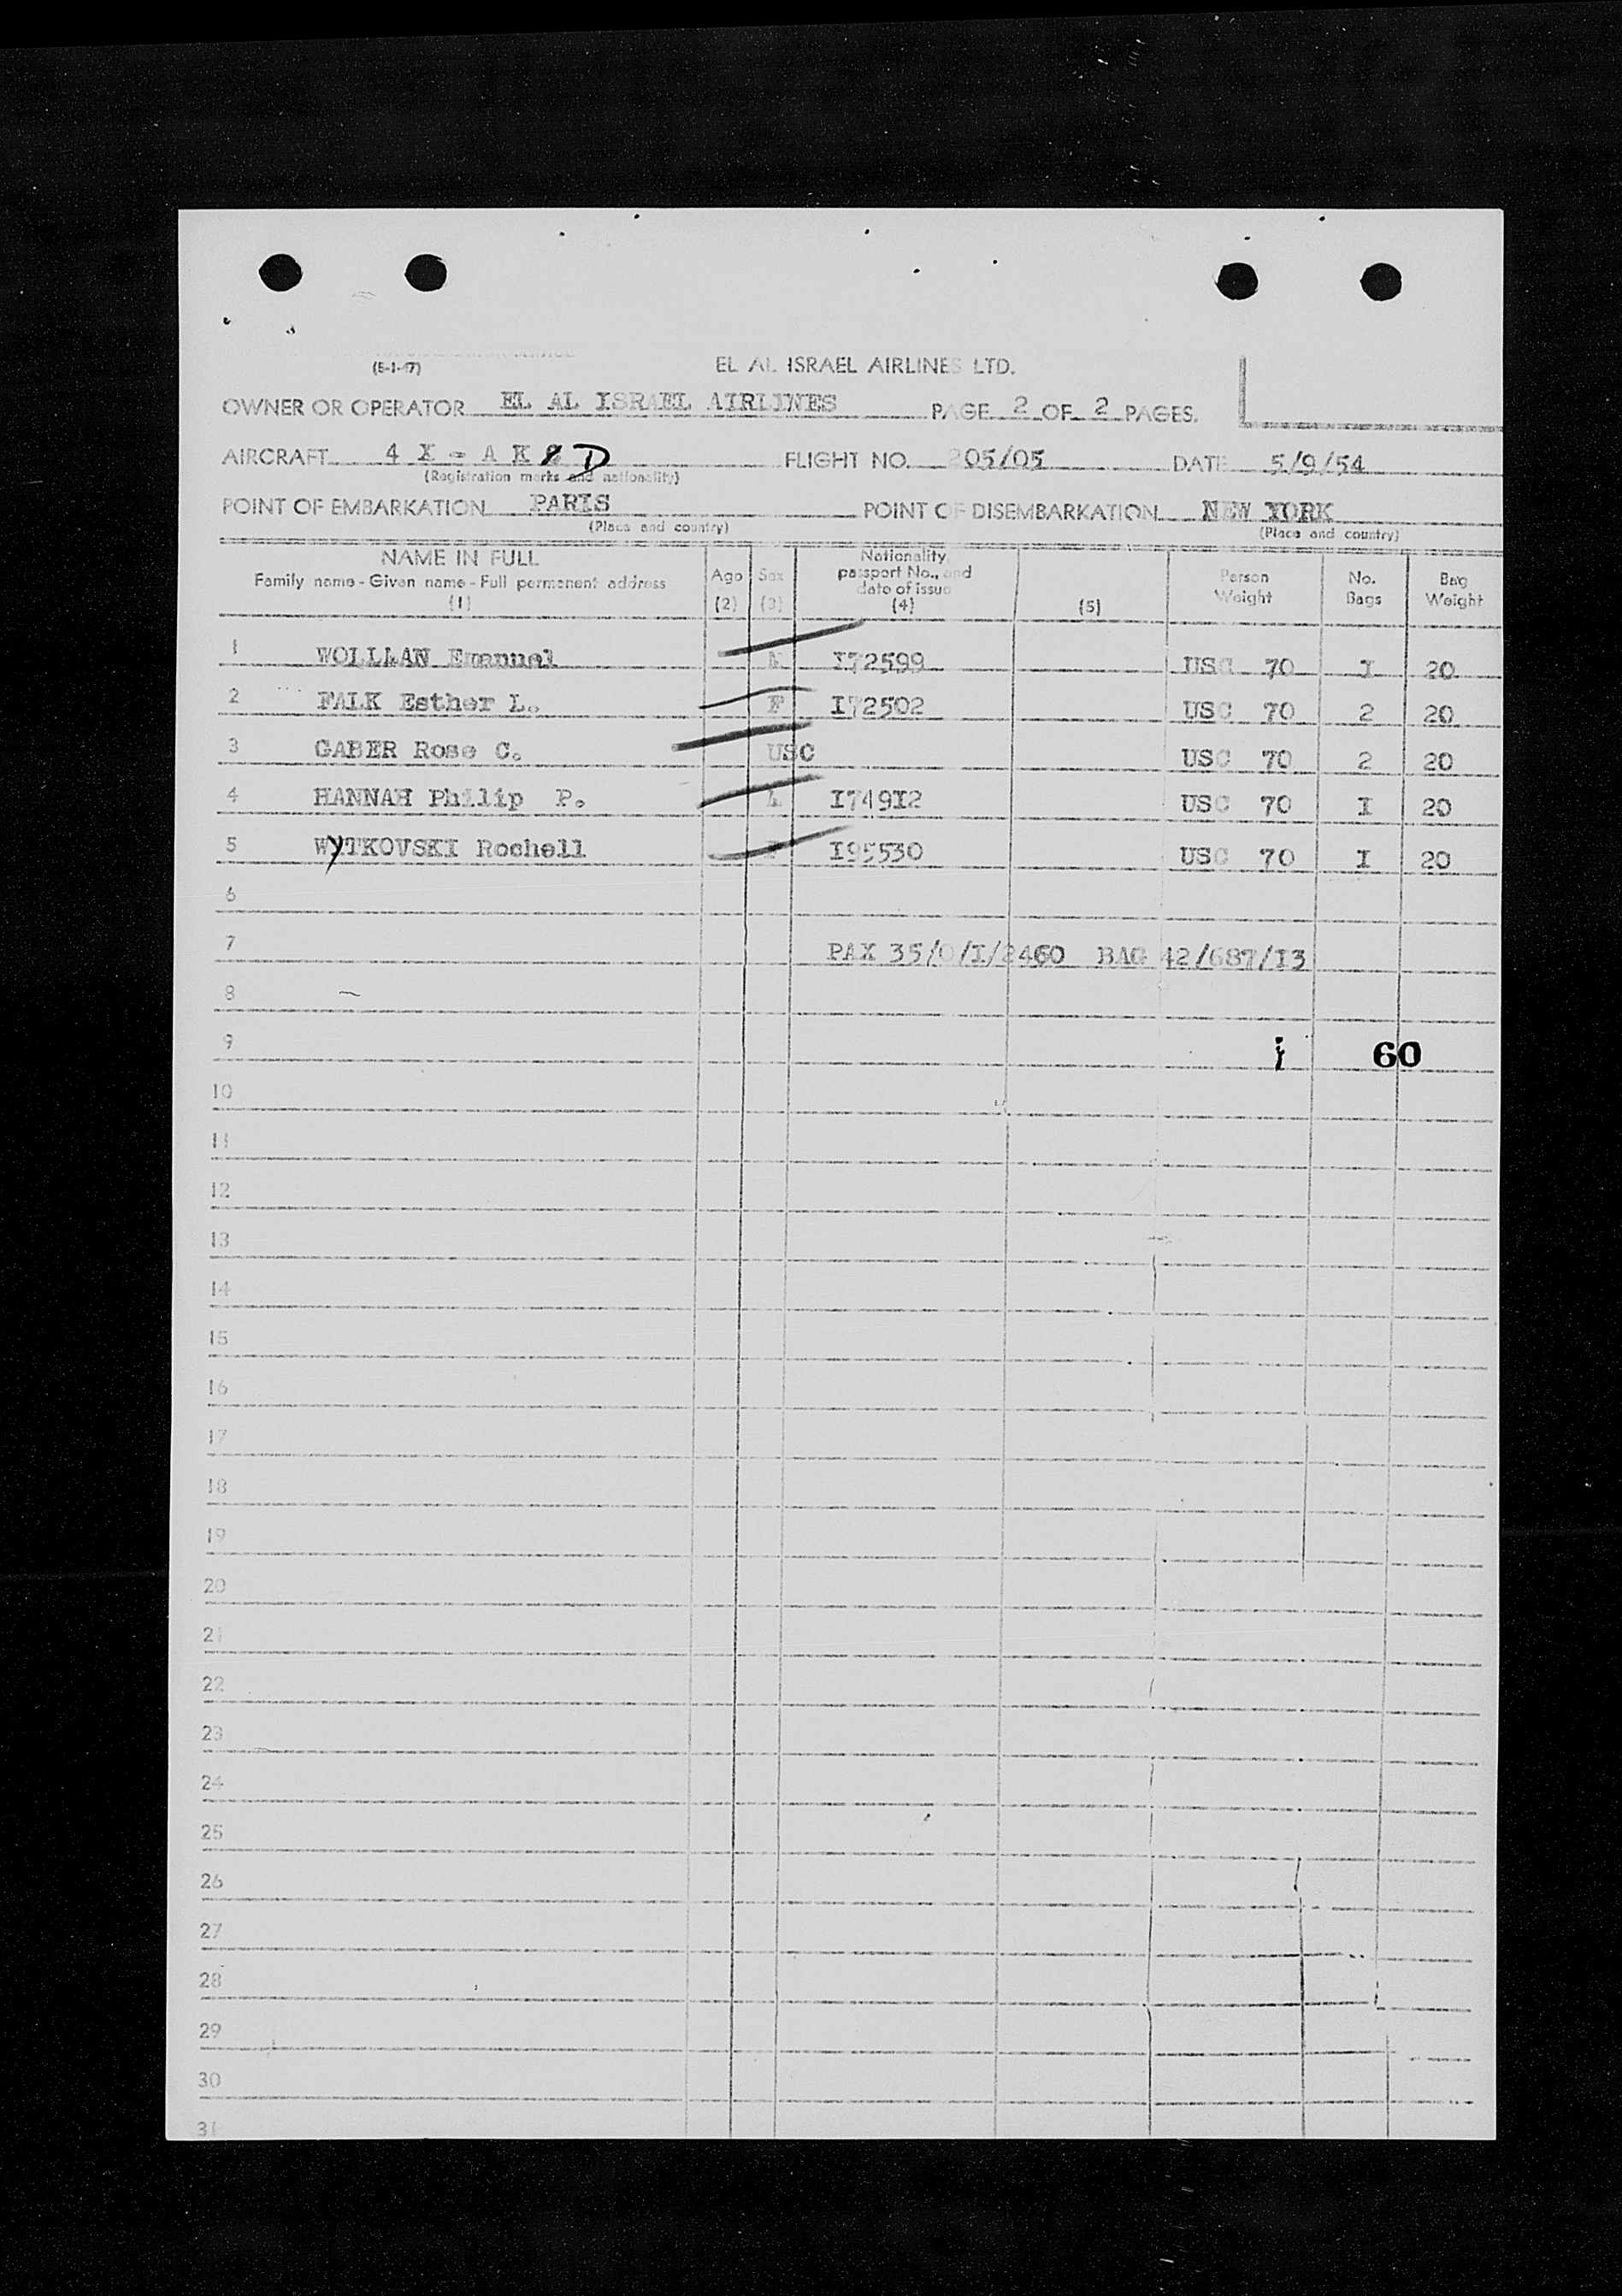 (5-1-47)
EL AL ISRAEL AIRLINES LTD.
OWNER OR OPERATOR EL AL ISRAEL AIRLINES PAGE 2 OF 2 PAGES.
AIRCRAFT 4 X - A K D FLIGHT NO. 205/05 DATE 5/9/54
(Registration marks and nationality)
POINT OF EMBARKATION PARIS POINT OF DISEMBARKATION NEW YORK
(Place and country) (Place and country)
NAME IN FULL
Family name - Given name - Full permanent address
(1)
Age
(2)
Sex
(3)
Nationality,
passport No., and
date of issue
(4)
(5)
Person
Weight
No.
Bags
Bag
Weight
1 WOLLMAN Emanuel I72599 USC 70 I 20
2 FALK Esther L. F I72502 USC 70 2 20
3 GABER Rose C. USC USC 70 2 20
4 HANNAH Philip P. I74912 USC 70 I 20
5 WYTKOVSKI Rochell F I95530 USC 70 I 20
6
7 PAX 35/0/I/2460 BAG 42/687/I3
8
9 60
10
11
12
13
14
15
16
17
18
19
20
21
22
23
24
25
26
27
28
29
30
31